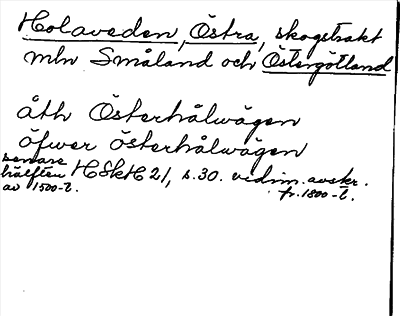 Holaveden, Östra, skogstrakt
mln Småland och Östergötland
åth Österhålwägen
öfwer österhålwägen
senare hälften av 1500-t. HSkH 21, s. 30. vidim. avskr. fr. 1800-t.